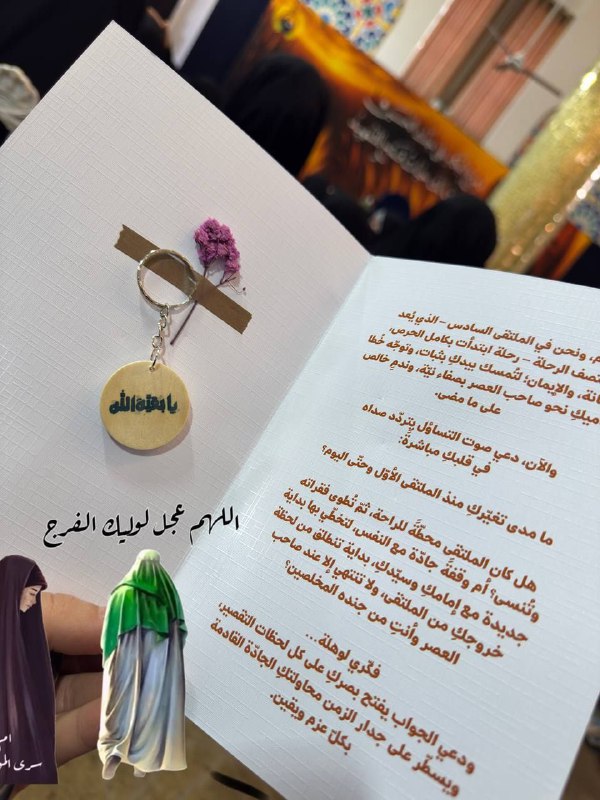 يا بقية الله
اللهم عجل لوليك الفرج
ونحن في الملتقى السادس – الذي يُعد
الرحلة – رحلة ابتدأت بكامل الحرص،
والإيمان؛ لتُمسك بيدكِ بثبات، وتوجّه خُطا
نحو صاحب العصر بصفاء نيّة، وندمٍ خالص
على ما مضى.
والآن، دعي صوت التساؤل يتردّد صداه
في قلبكِ مباشرةً:
ما مدى تغيّركِ منذ الملتقى الأوّل وحتّى اليوم؟
هل كان الملتقى محطّةً للراحة، ثمّ تُطوى فقراته
وتُنسى؟ أم وقفةً جادّة مع النفس، لتخطّي بها بداية
جديدة مع إمامكِ وسيّدكِ، بداية تنطلق من لحظة
خروجكِ من الملتقى، ولا تنتهي إلا عند صاحب
العصر وأنتِ من جنده المخلصين؟
فكّري لوهلة...
ودعي الجواب يفتح بصركِ على كل لحظات التقصير،
ويسطّر على جدار الزمن محاولتكِ الجادّة القادمة
بكلّ عزم ويقين.